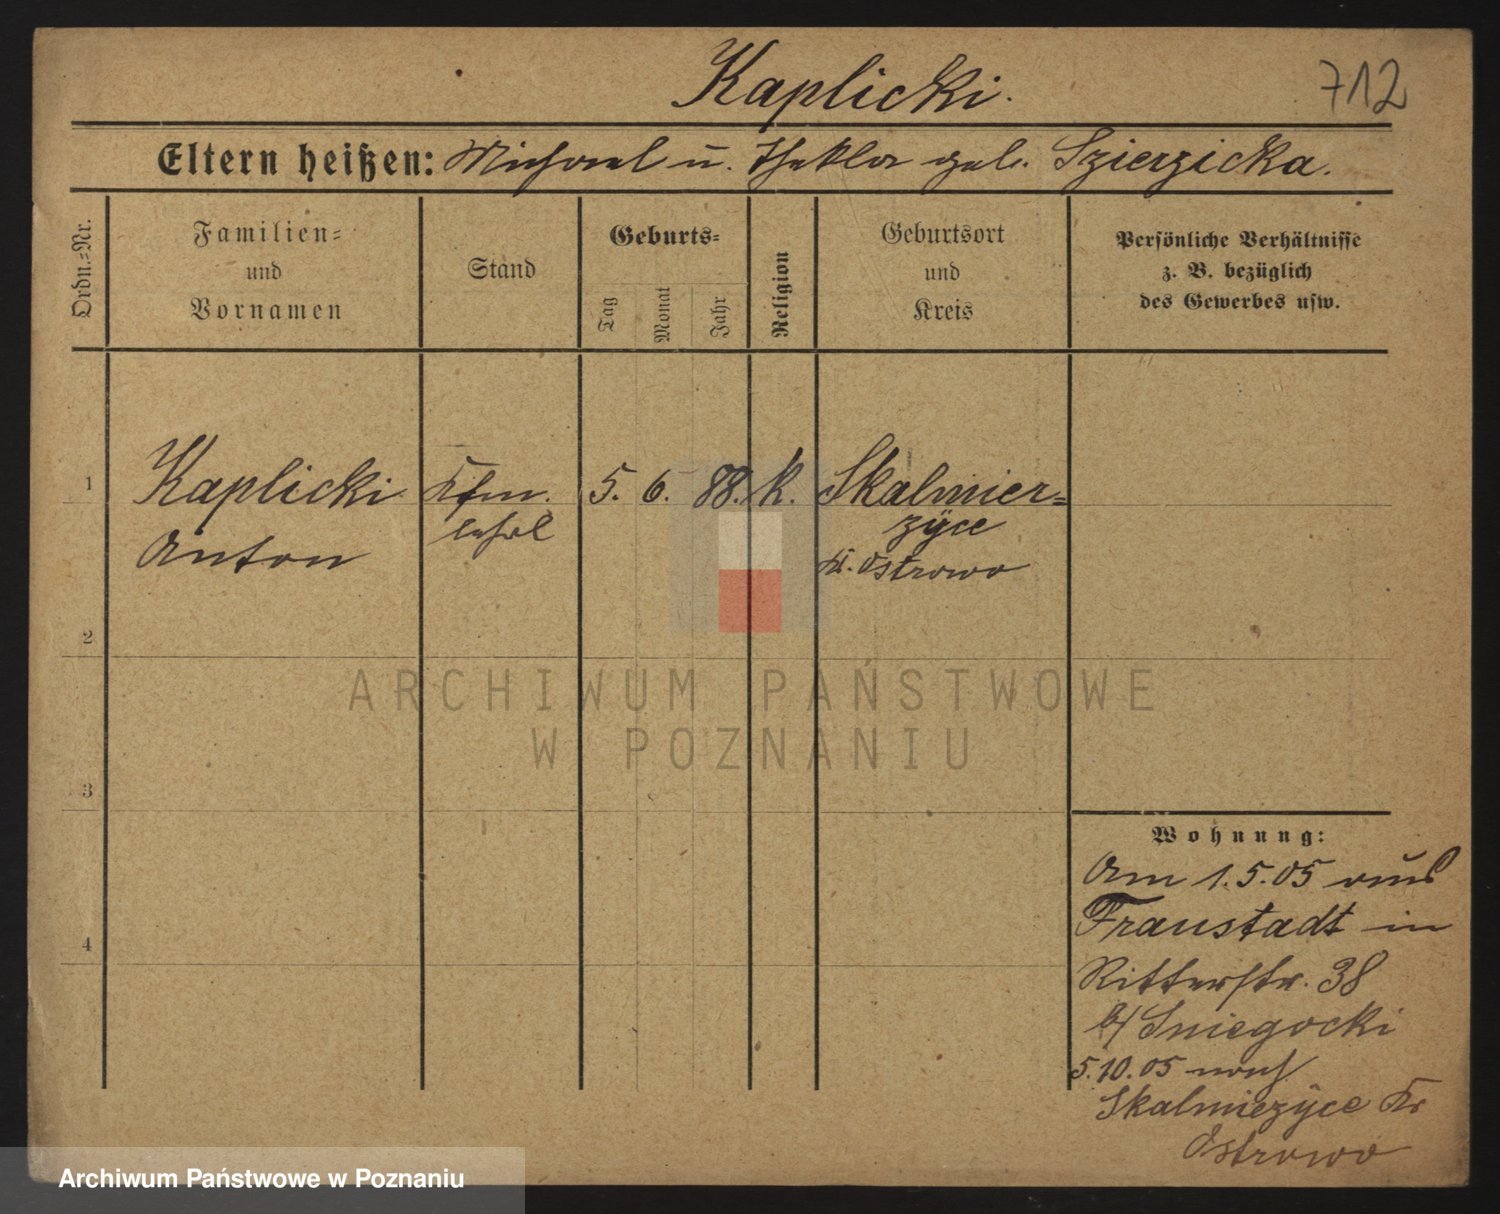 Kaplicki.
712
Eltern heißen: Michael u. Thekla geb. Szierzicka.
Ordn.-Nr.
Familien-
und
Vornamen
Stand
Geburts-
Tag
Monat
Jahr
Religion
Geburtsort
und
Kreis
Persönliche Verhältnisse
z. B. bezüglich
des Gewerbes usw.
1 Kaplicki Kfm. 5. 6. 88. k. Skalmier-
Anton lehrl zÿce
Kr. Ostrowo
2
3
4
Wohnung:
Am 1.5.05 aus
Fraustadt in
Ritterstr. 38
b/ Sniegocki
5.10.05 nach
Skalmiezÿce Kr
Ostrowo
ARCHIWUM PAŃSTWOWE
W POZNANIU
Archiwum Państwowe w Poznaniu